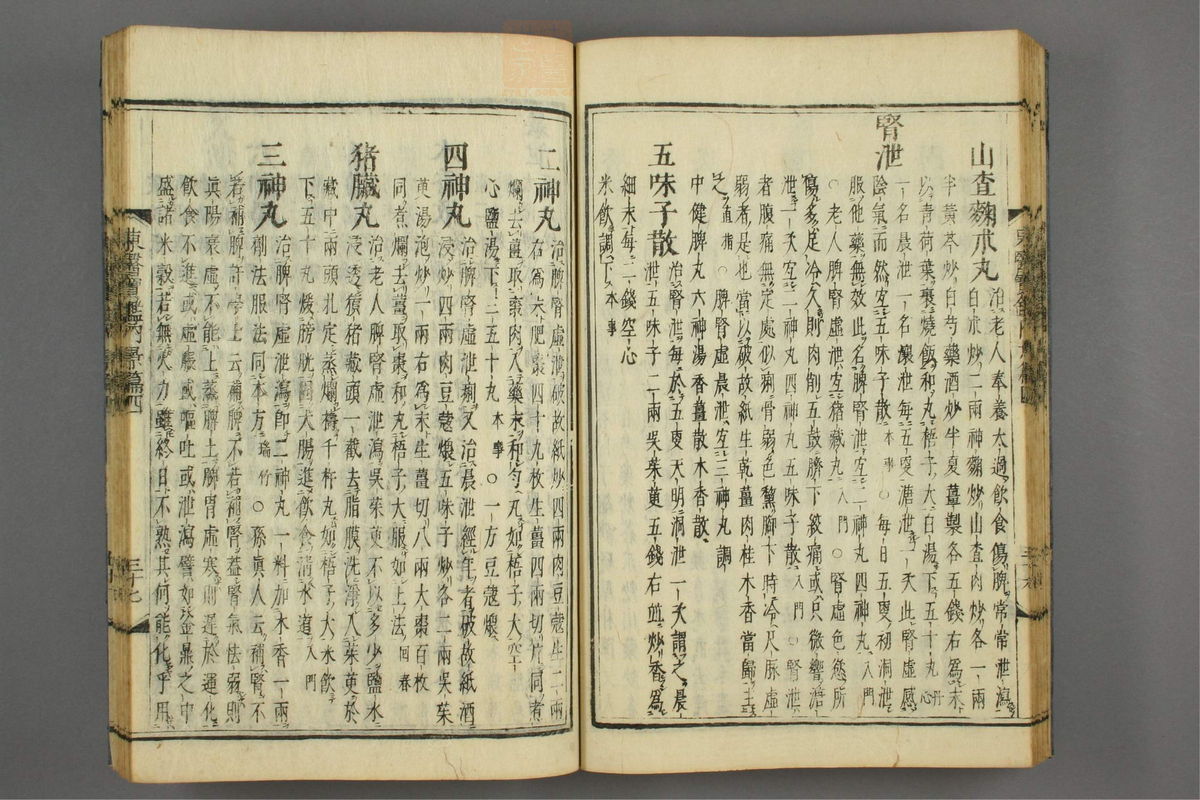 山査麴朮丸 治老人奉養太過飲食傷脾常常泄瀉
白朮炒二兩神麴炒山査肉炒各一兩
半黃芩炒白芍藥酒炒半夏薑製各五錢右爲末
以青荷葉裹燒飯和丸梧子大白湯下五十丸丹心
腎泄 一名晨泄一名瀼泄每五更溏泄一次此腎虛感
陰氣而然宜五味子散本事○每日五更初洞泄
服他藥無效此名脾腎泄宜二神丸四神丸入門
○老人脾腎虛泄宜猪臟丸入門○腎虛色慾所
傷多足冷久則肉削五鼓臍下絞痛或只微響溏
泄一次宜二神丸四神丸五味子散入門○腎泄
者腹痛無定處似痢骨弱色黧脚下時冷尺脉虛
弱者是也當以破故紙生乾薑肉桂木香當歸主
之直指○脾腎虛晨泄宜三神丸調
中健脾丸六神湯香薑散木香散
五味子散 治腎泄每於五更天明洞泄一次謂之晨
泄五味子二兩吳茱萸五錢右並炒香爲
細末每二錢空心
米飲調下本事
二神丸 治脾腎虛泄破故紙炒四兩肉豆蔻生二兩
右爲末肥棗四十九枚生薑四兩切片同煮
爛去薑取棗肉入藥末和勻丸如梧子大空
心鹽湯下三五十丸本事○一方豆蔻煨
四神丸 治脾腎虛泄痢又治晨泄經年者破故紙酒
浸炒四兩肉豆蔻煨五味子炒各二兩吳茱
萸湯泡炒一兩右爲末生薑切八兩大棗百枚
同煮爛去薑取棗和丸梧子大服如上法回春
猪臟丸 治老人脾腎虛泄瀉吳茱萸不以多少鹽水
浸透猪臟頭一截去脂膜洗淨入茱萸於
臟中兩頭扎定蒸爛擣千杵丸如梧子大米飲
下五十丸煖膀胱固大腸進飲食清水道入門
三神丸 治脾腎虛泄瀉卽二神丸一料加木香一兩
劑法服法同本方瑞竹○孫眞人云補腎不
若補脾許學士云補脾不若補腎蓋腎氣法弱則
眞陽衰虛不能上蒸臍上脾胃虛寒則遲於運化
飲食不進或虛脹或嘔吐或泄瀉譬如釜鼎之中
盛諸米穀若無火力雖終日不熟其何能化乎用